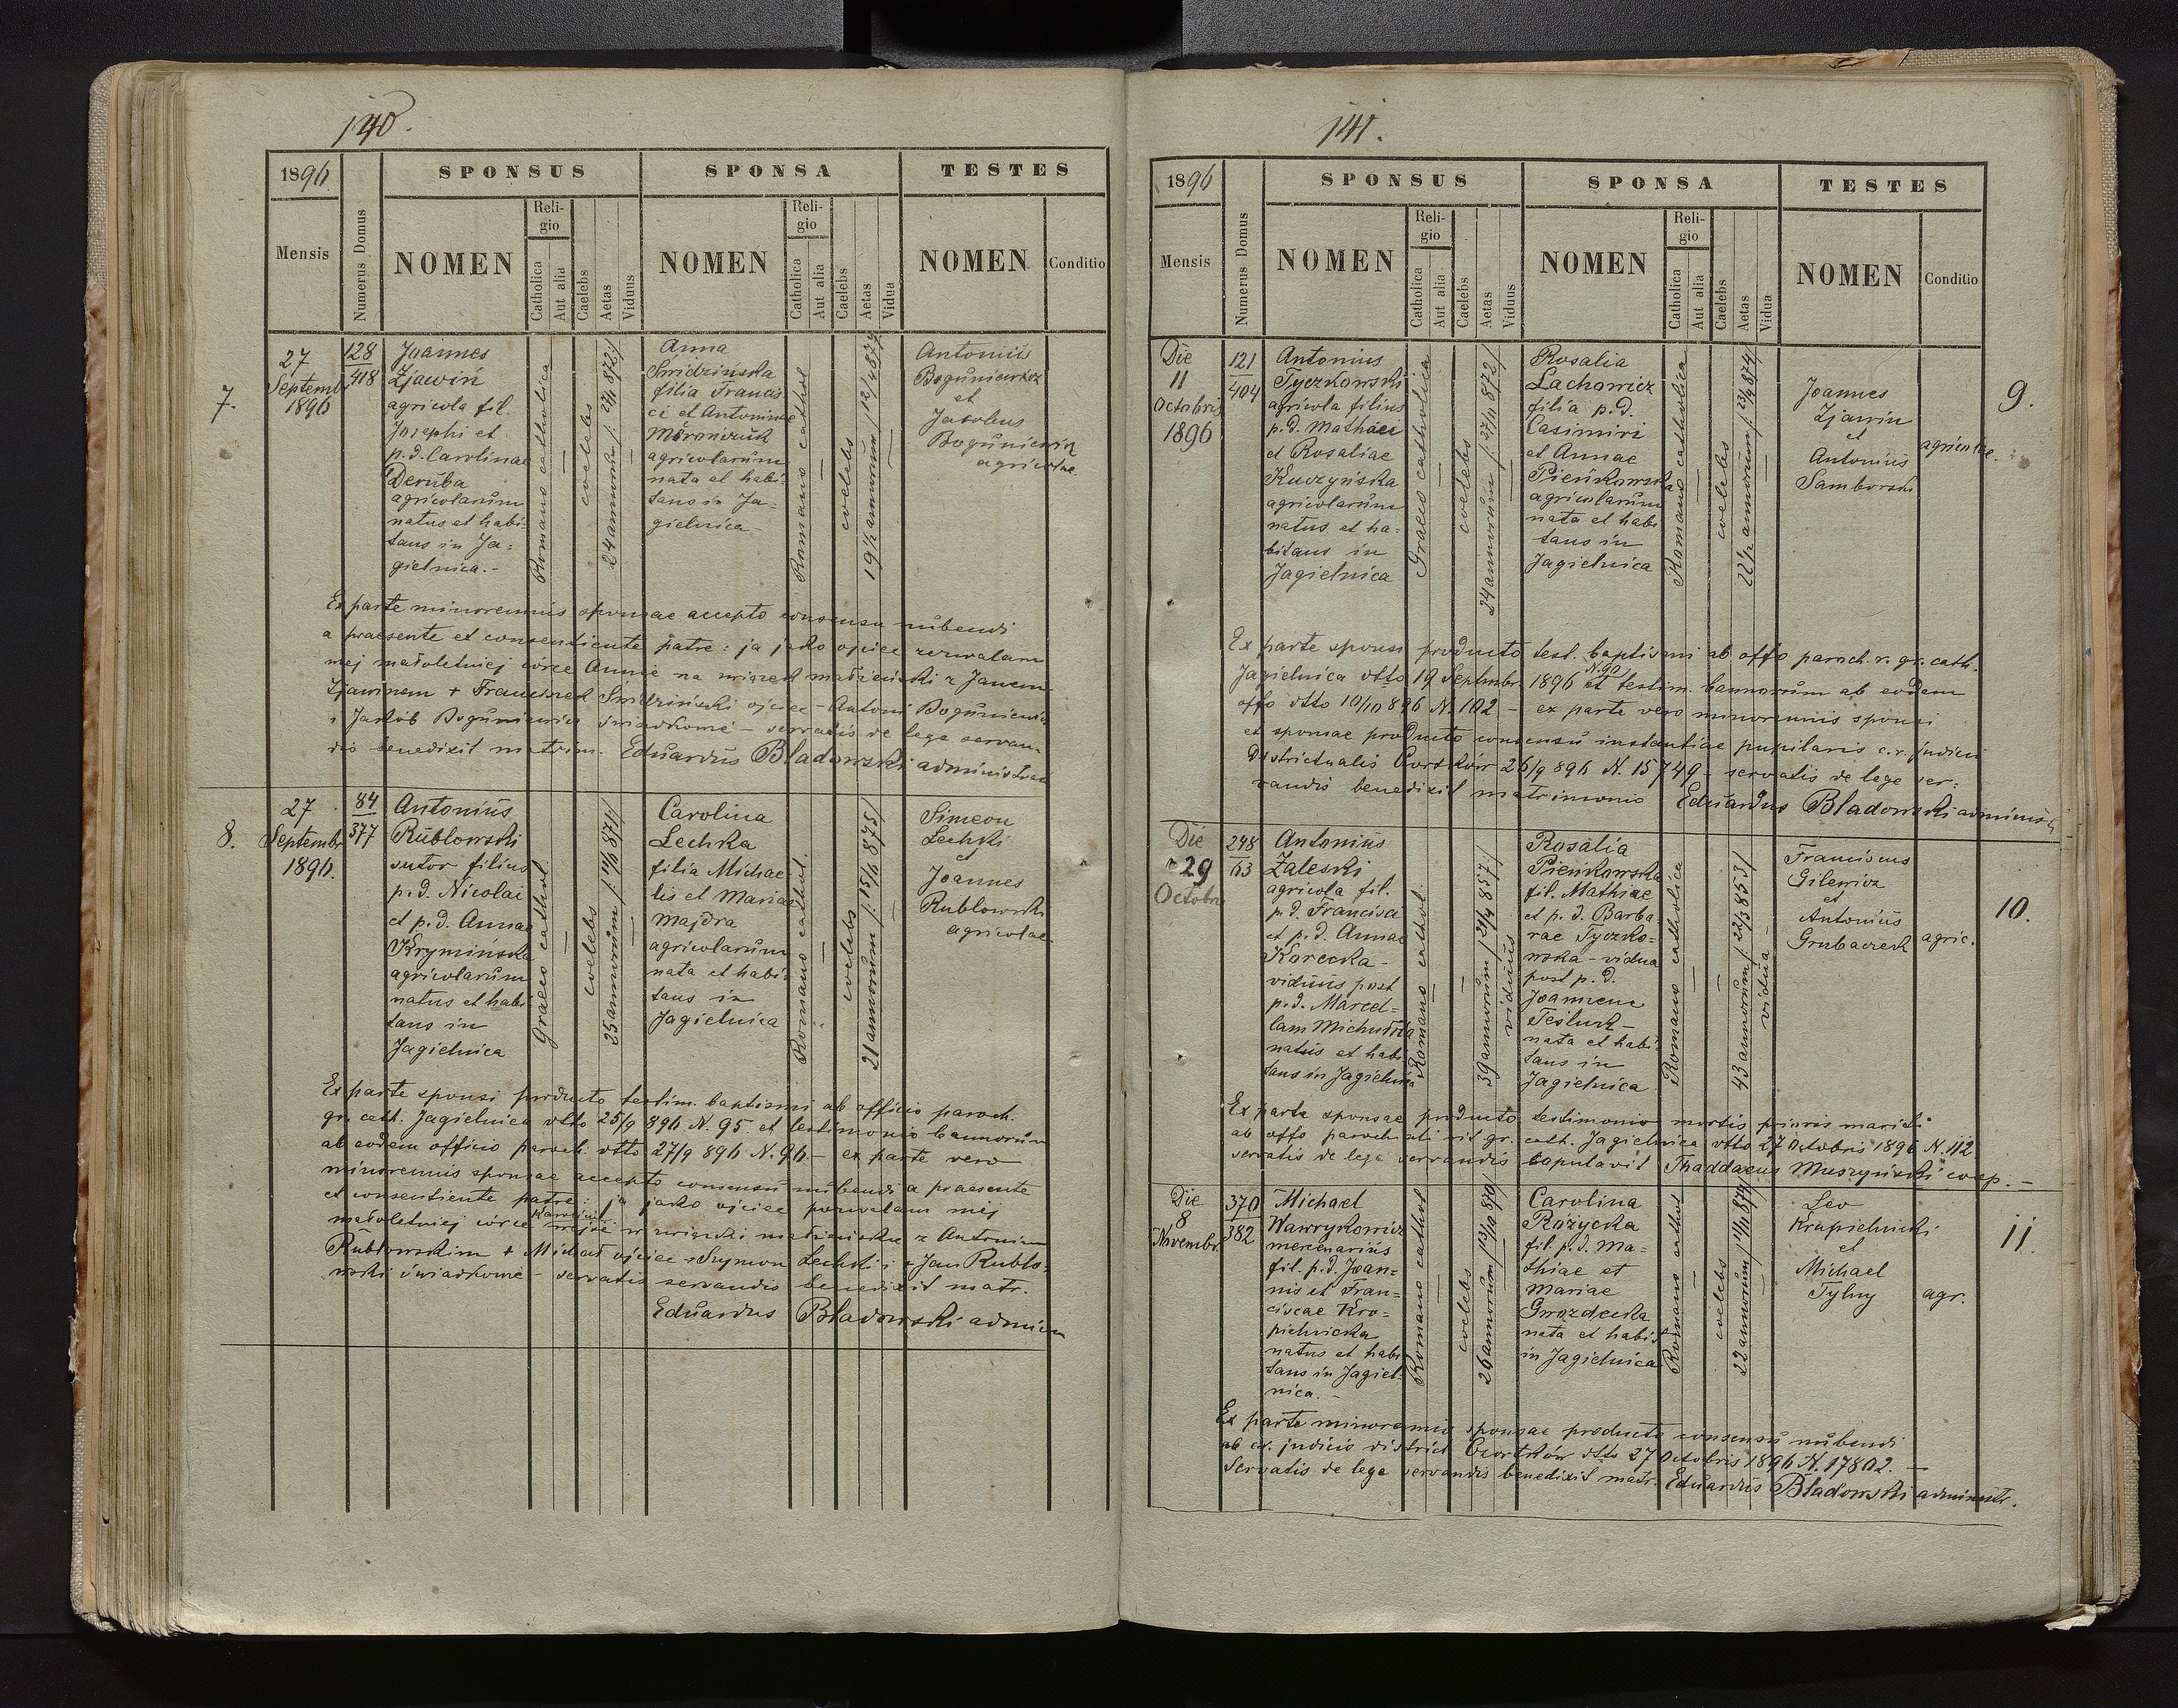 140.
1896
SPONSUS
SPONSA
TESTES
Mensis
Numerus Domus
NOMEN
Religio
Catholica
Aut alia
Caelebs
Aetas
Viduus
NOMEN
Religio
Catholica
Aut alia
Caelebs
Aetas
Vidua
NOMEN
Conditio
7.
27
Septembr
1896
128
418
Joannes
Zjawiń
agricola fil.
Josephi et
p.d. Carolinae
Deruba
agricolarum
natus et habi-
tans in Ja=
gielnica.-
Romano catholica
coelebs
24 annorum
Anna
Smidzinska
filia Francis
ci et Antoninae
agricolarum
nata et habi-
tans in Ja=
gielnica -
Romano cathol
coelebs
19½ annorum
Antonius
Boguniewicz
et
Jacobus
Boguniewicz
agricolae
Ex parte minorennis sponsae accepto consensu nubendi
a praesente et consentiente patre: ja jako ojciec zezwalam
mej małoletniej córce Annie na związek małżeński z Janem
Zjawinem + Franciszek Smidziński ojciec - Antoni Boguniewicz
i Jakób Boguniewicz świadkowie - servatis de lege servan-
dis benedixit matrim. Eduardus Bladowski administrat
8.
27
Septembr
1896.
84
377
Antonius
Rublowski
sutor filius
p.d. Nicolai
et p.d. Annae
Krymińska
agricolarum
natus et habi
tans in
Jagielnica
Graeco cathol.
coelebs
25 annorum
Carolina
Lechka
filia Michae
lis et Mariae
Majdra
agricolarum
nata et habi-
tans in
Jagielnica
Romano cathol.
coelebs
21 annorum
Simeon
Lechki
et
Joannes
Rublowski
agricolae
Ex parte sponsi producto testim. baptismi ab officio paroch.
gr. cath. Jagielnica dtto 25/9 896 N. 95 et testimonio bannorum
ab eodem officio paroch. dtto 27/9 896 N. 96.- ex parte vero
minorennis sponsae accepto consensu nubendi a praesente
et consentiente patre: ja jako ojciec pozwalam mej
małoletniej córce Karolinie wejść w związki małżeńskie z Antonim
Rublowskim + Michał ojciec + Szymon Lechki i + Jan Rublo=
wski świadkowie - servatis servandis benedixit matr.
Eduardus Bladowski admin
141.
1896
SPONSUS
SPONSA
TESTES
Mensis
Numerus Domus
NOMEN
Religio
Catholica
Aut alia
Caelebs
Aetas
Viduus
NOMEN
Religio
Catholica
Aut alia
Caelebs
Aetas
Vidua
NOMEN
Conditio
Die
11
Octobris
1896
121
404
Antonius
Tyczkowski
agricola filius
p.d. Mathaei
et Rosaliae
Kuczyńska
agricolarum
natus et ha-
bitans in
Jagielnica
Graeco catholica
coelebs
24 annorum
Rosalia
Lachowicz
filia p.d.
Casimiri
et Annae
Pieńkowska
agricolarum
nata et habi
tans in
Jagielnica
Romano catholica
coelebs
22½ annorum
Joannes
Zjawin
et
Antonius
Samborski
agricolae.
9.
Ex parte sponsi producto test. baptismi ab offo paroch. r. gr. cath.
Jagielnica dtto 19 Septembr. 1896 N. 90 et testim. bannorum ab eodem
offo dtto 10/10 896 N. 102 - ex parte vero minorennis sponsi
et sponsae producto consensu instantiae pupilaris c.r. judicii
Districtualis Czortków 26/9 896 N. 15749 - servatis de lege ser=
vandis benedixit matrimonio Eduardus Bladowski administ
Die
29
Octobr
248
63
Antonius
Zaleski
agricola fil.
p.d. Francisci
et p.d. Annae
Korecka -
viduus post
p.d. Marcel=
lam
natus et habi
tans in Jagielnica
Romano cathol.
39 annorum
viduus
Rosalia
Pieńkowska
fil. Mathiae
et p.d. Barba
rae Tyczko=
wska - vidua
post p.d.
Joannem
Tesluk -
nata et habi-
tans in
Jagielnica
Romano catholica
43 annorum
vidua
Franciscus
Gilewicz
et
Antonius
Grubaczek
agric.
10.
Ex parte sponsae producto testimonio mortis prioris mariti
ab offo paroch. rit gr. cath. Jagielnica dtto 27 Octobris 1896 N. 112.
servatis de lege servandis copulavit Thaddaeus Muszyński coop. -
Die
8
Novembr.
370
382
Michael
Wawrykowicz
mercenarius
fil. p.d. Joan=
nis et Fran=
ciscae Kro=
pielnicka
natus et habi
tans in Jagiel-
nica. -
Romano cathol
coelebs
26 annorum
Carolina
Różycka
fil. p.d. Ma=
thiae et
Mariae
Gwozdecka
nata et habit
in Jagielnica
Romano cathol
coelebs
22 annorum
Leo
Krapielnicki
et
Michael
Tylny
agr.
11.
Ex parte minorennis sponsae producto consensu nubendi
ab c.r. judicio district Czortków dtto 27 Octobris 1896 N. 17802. -
Servatis de lege servandis benedixit matr. Eduardus Bladowski administr.